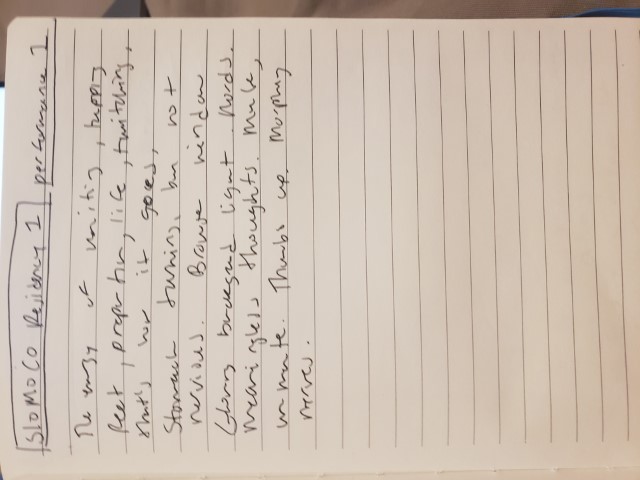 SloMoCo Residency 1 performance 1
The energy of waiting, tapping
feet, preparation, life, twitching,
that's how it goes,
Stomach turning, but not
nervious. Browser window
Glowy background light. Words.
Meaningless thoughts. Mute,
unmute. Thumbs up. Morphing
nerves.